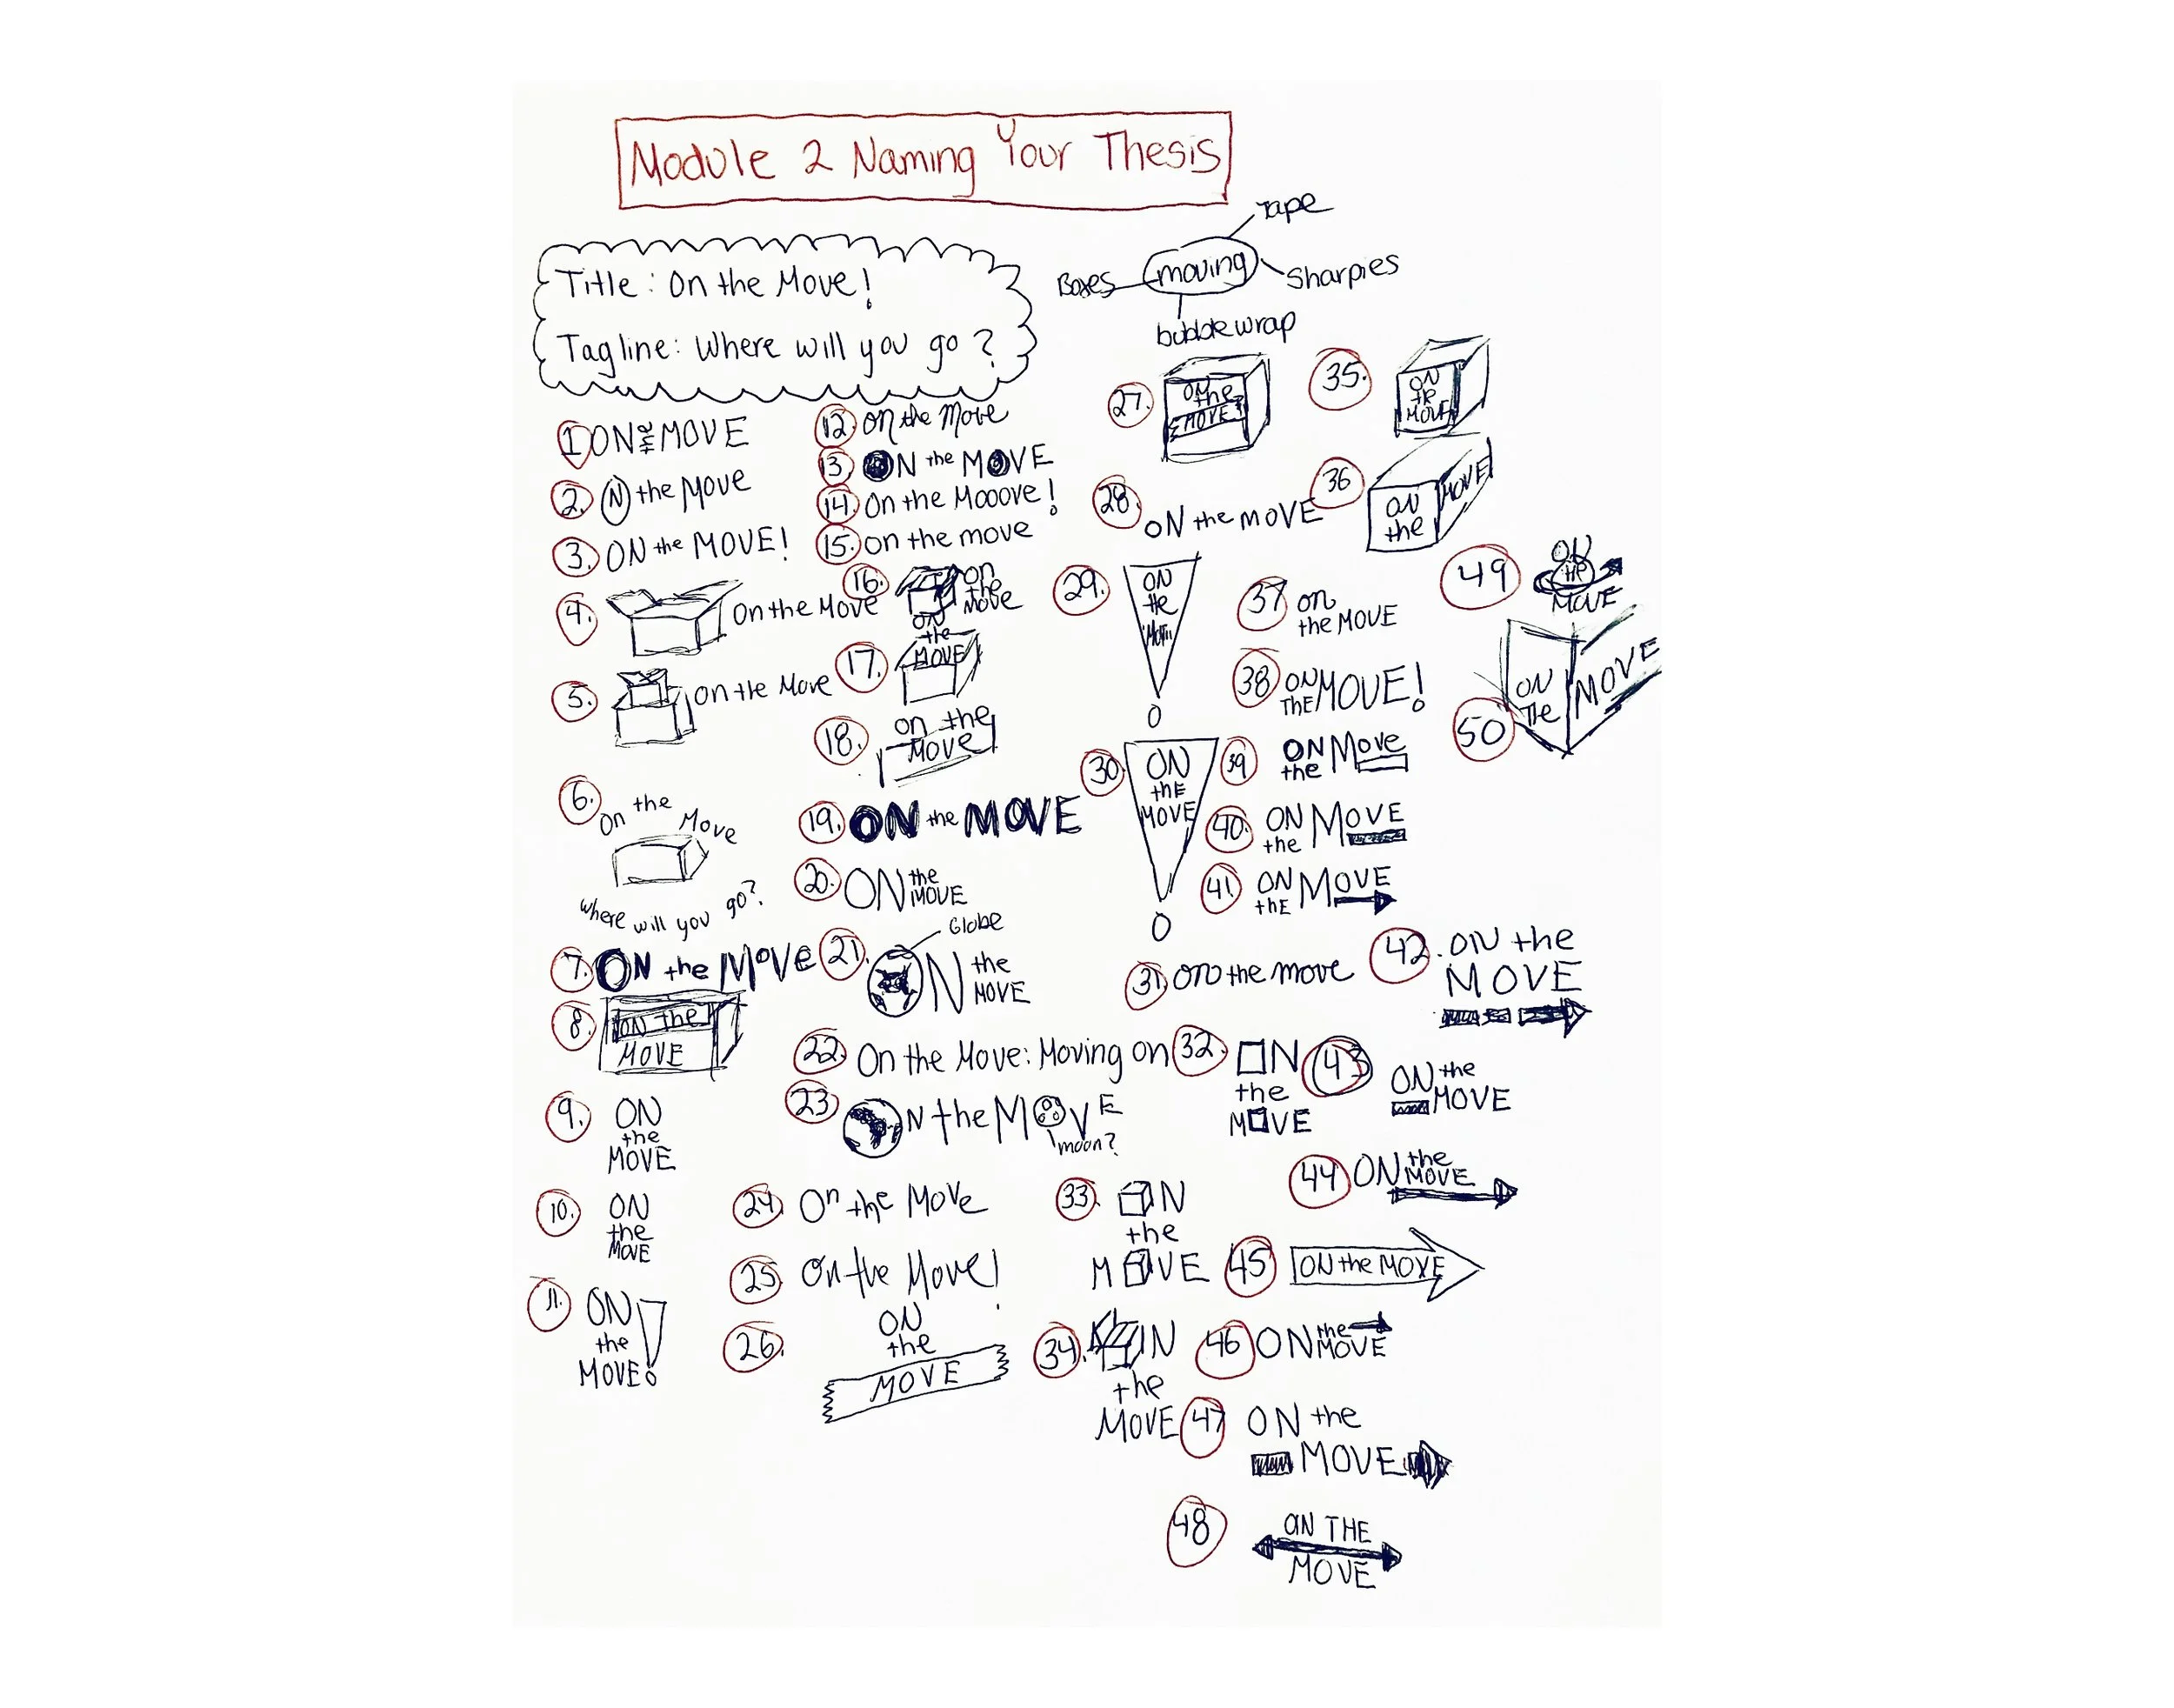 Module 2 Naming Your Thesis
Title: On the Move!
Tagline: Where will you go?
Tape
Boxes
moving
Sharpies
bubble wrap
1 ON the MOVE
2. N the Move
3. ON the MOVE!
4. On the Move
5. on the Move
6. on the Move
where will you go?
7. ON the MOVE
8. ON the
MOVE
9. ON
the
MOVE
10. ON
the
MOVE
11. ON
the
MOVE!
12. on the Move
13. ON the MOVE
14. On the Mooove!
15. on the move
16. on
the
Move
17. ON
the
MOVE
18. on the
Move
19. ON the MOVE
20. ON the
MOVE
Globe
21. N the
MOVE
22. On the Move: Moving on
23 N the M VE
moon?
24. On the Move
25. On the Move!
26. ON
the
MOVE
27. ON
the
MOVE
28. ON the MOVE
29. ON
the
30. ON
thE
MOVE
31. on the move
32. ON
the
MOVE
33. ON
the
MOVE
34. N
the
MOVE
35. ON
the
MOVE
36 ON
the
MOVE
37 on
the MOVE
38 ON
ThE MOVE!
39 ON
the Move
40. ON
the MOVE
41. ON
thE MOVE
42. ON the
MOVE
43 ON the
MOVE
44 ON the
MOVE
45 ON the MOVE
46 ON the
MOVE
47 ON the
MOVE
48 ON THE
MOVE
49 ON
the
MOVE
50 ON
The
MOVE